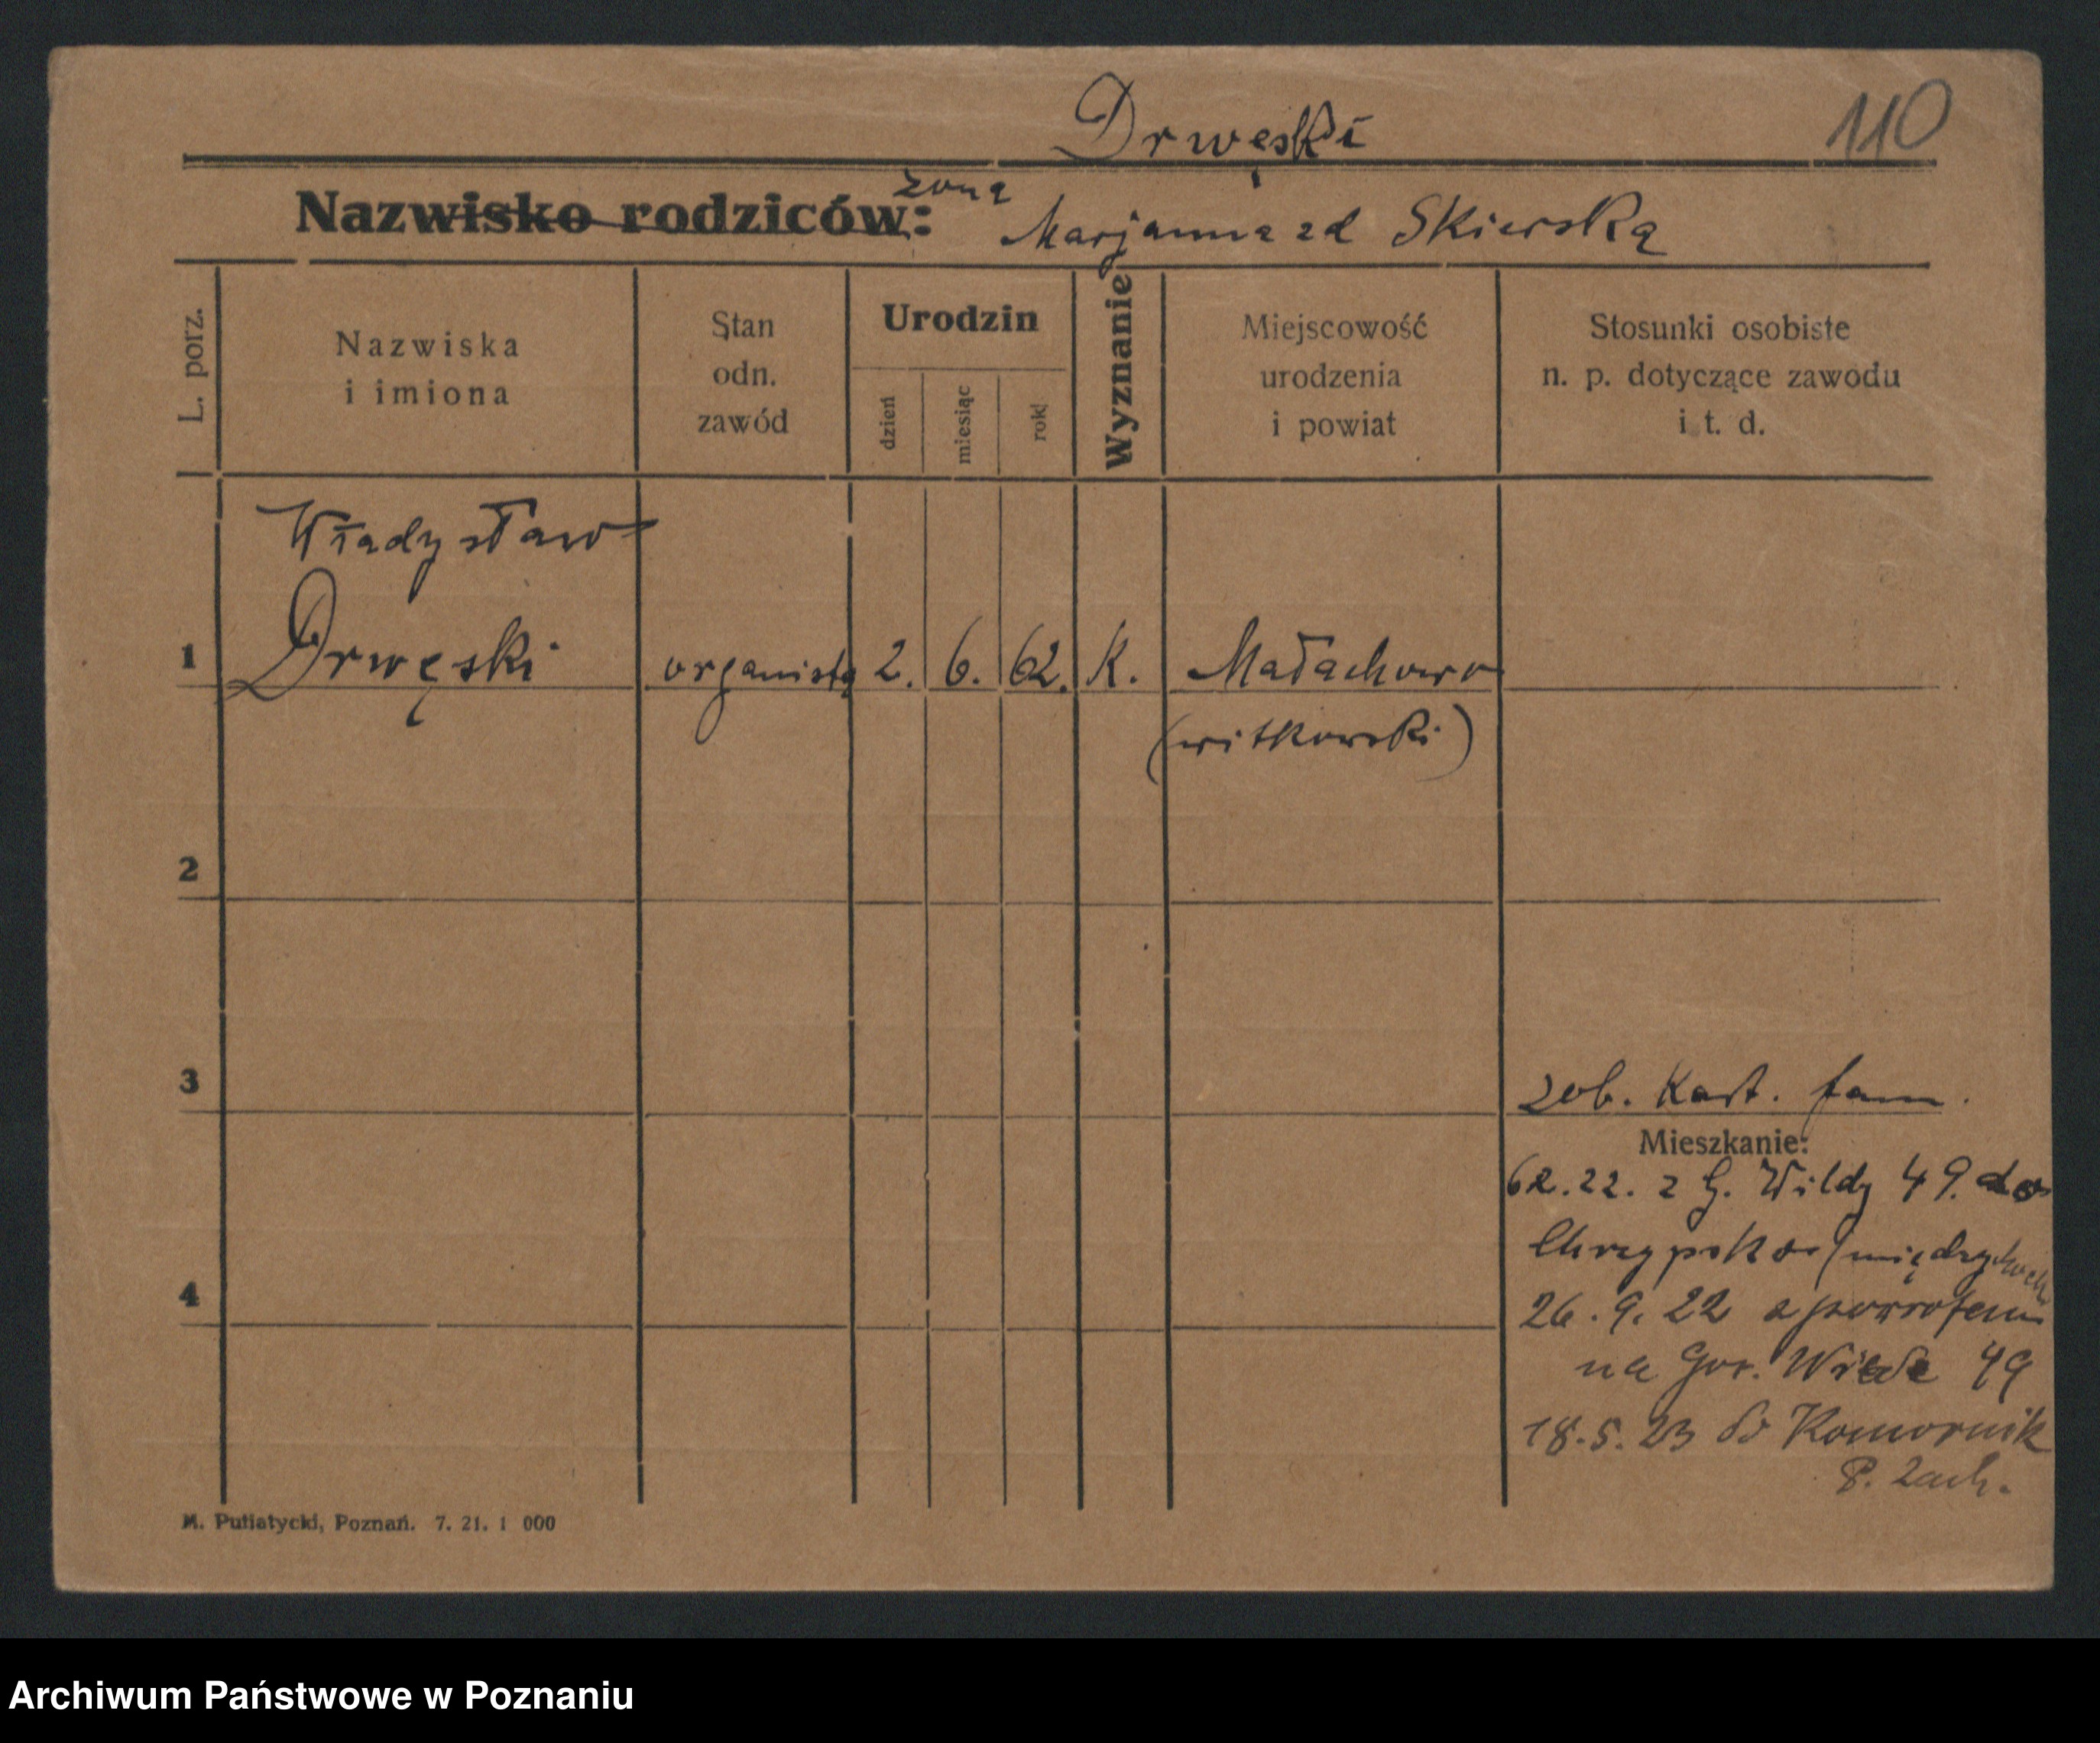 Drwęski
110
żona
Nazwisko rodziców: Marjanna zd Skierska
L. porz.
Nazwiska
i imiona
Stan
odn.
zawód
Urodzin
dzień
miesiąc
rok
Wyznanie
Miejscowość
urodzenia
i powiat
Stosunki osobiste
n. p. dotyczące zawodu
i t. d.
Władysław
1 Drwęski organista 2. 6. 62. K. Małachowo
(witkowski)
2
3
zob. Kart. fam.
Mieszkanie:
22. z G. Wildy 49. do
Chrzypsko (międzychod
4
26. 9. 22 z powrotem
na Gór. Wilde 49
18. 5. 23 do Komornik
P. Zach.
M. Putiatycki, Poznań. 7. 21. 1 000
Archiwum Państwowe w Poznaniu